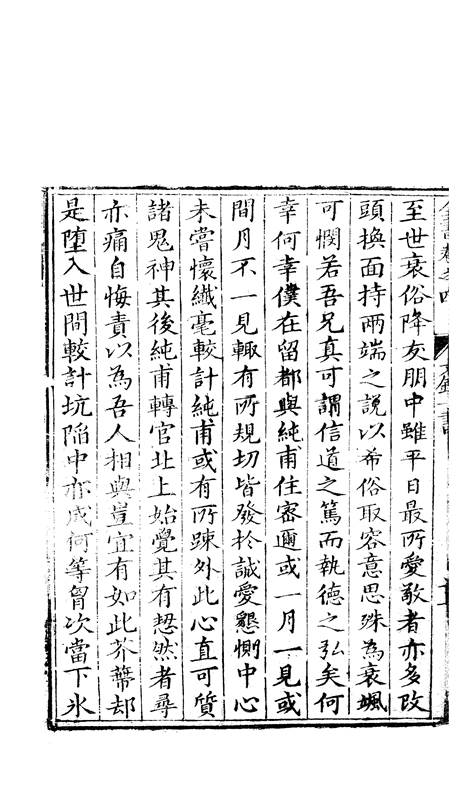 至世衰俗降友朋中雖平日最所愛敬者亦多改
頭換面持兩端之說以希俗取容意思殊為衰颯
可憫若吾兄真可謂信道之篤而執德之弘矣何
幸何幸僕在留都與純甫住密邇或一月一見或
間月不一見輒有所規切皆發於誠愛懇惻中心
未嘗懷纖毫較計純甫或有所踈外此心直可質
諸鬼神其後純甫轉官北上始覺其有恝然者尋
亦痛自悔責以為吾人相與豈宜有如此芥蔕却
是墮入世間較計坑陷中亦成何等胷次當下氷